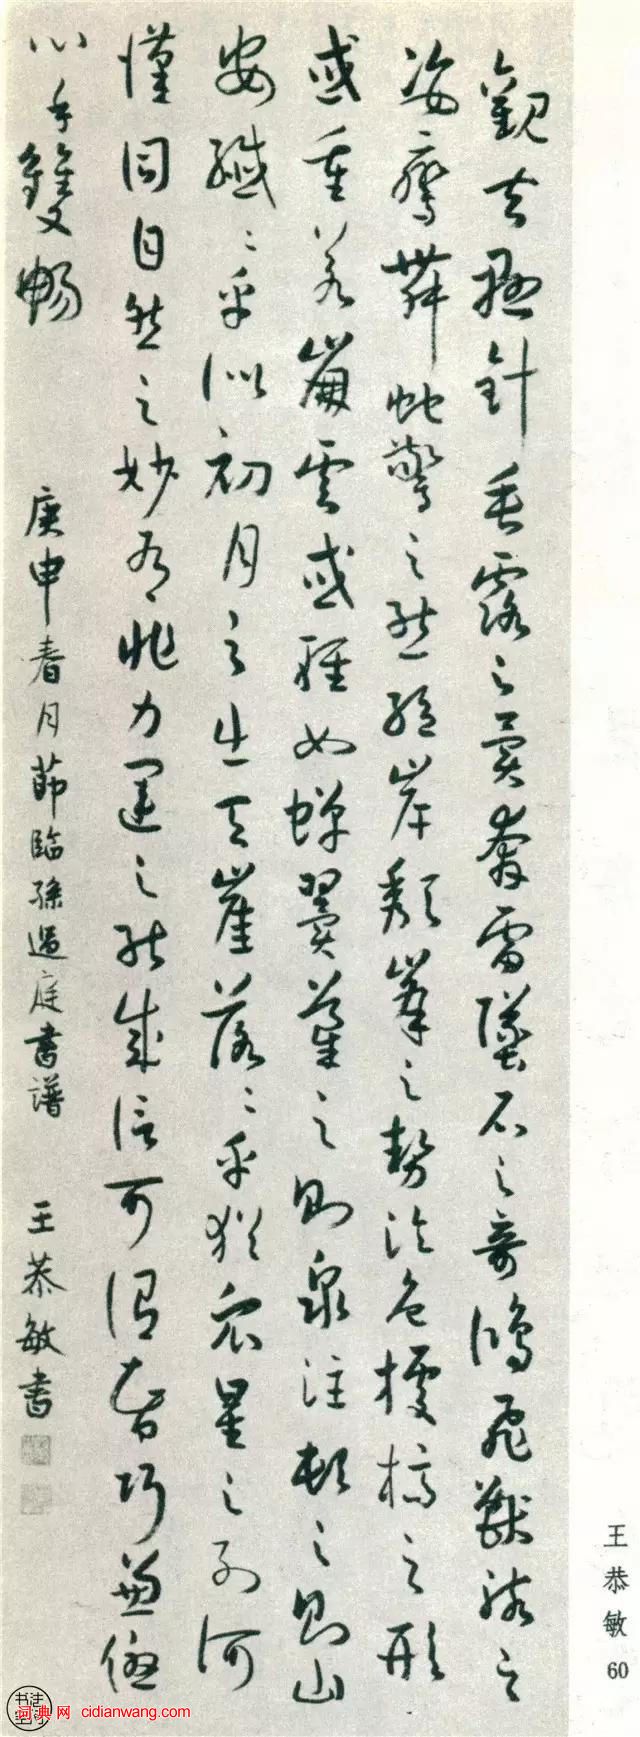 觀夫懸針垂露之異奔雷墜石之奇鴻飛獸駭之
姿鸞舞蛇驚之態絕岸頹峯之勢臨危據槁之形
或重若崩雲或輕如蟬翼導之則泉注頓之則山
安纖〻乎似初月之出天崖落〻乎猶衆星之列河
漢同自然之妙有非力運之能成信可謂智巧兼優
心手雙暢 庚申春月節臨孫過庭書譜 王恭敏書
王恭敏
60
词典网 cidianwang.com